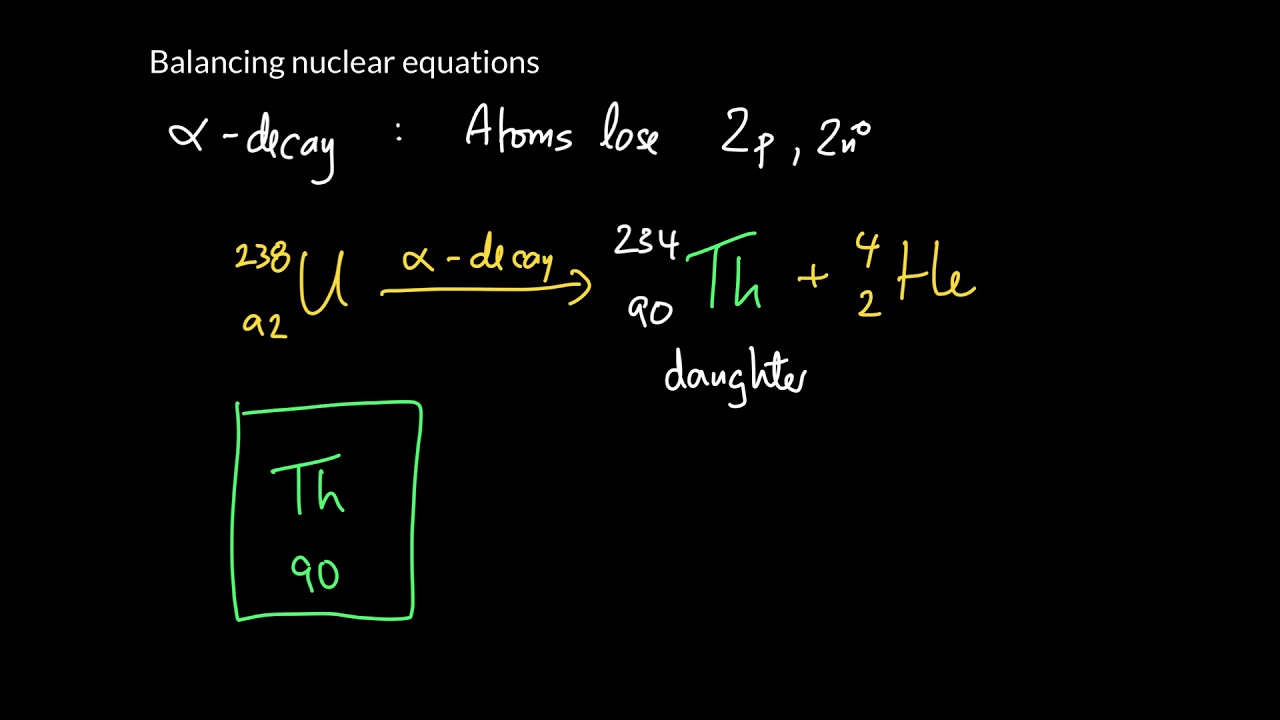 Balancing nuclear equations
α-decay : Atoms lose 2p, 2n⁰
²³⁸₉₂U α-decay → ²³⁴₉₀Th + ⁴₂He
daughter
Th
90